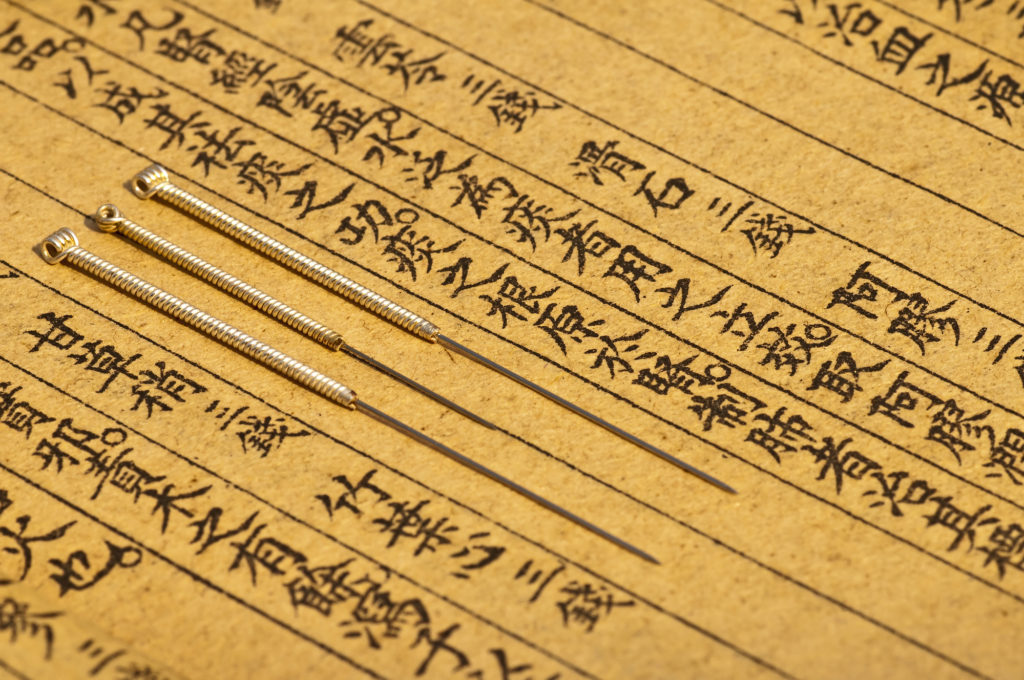 治血之源
雲苓三錢 滑石三錢 阿膠三
凡腎經陰虛水泛為痰者用之立效。取阿膠潤
品。以成其祛痰之功。痰之根原於腎。制肺者治其標
甘草稍三錢 竹葉心三錢
實邪。責木之有餘瀉子
火也。